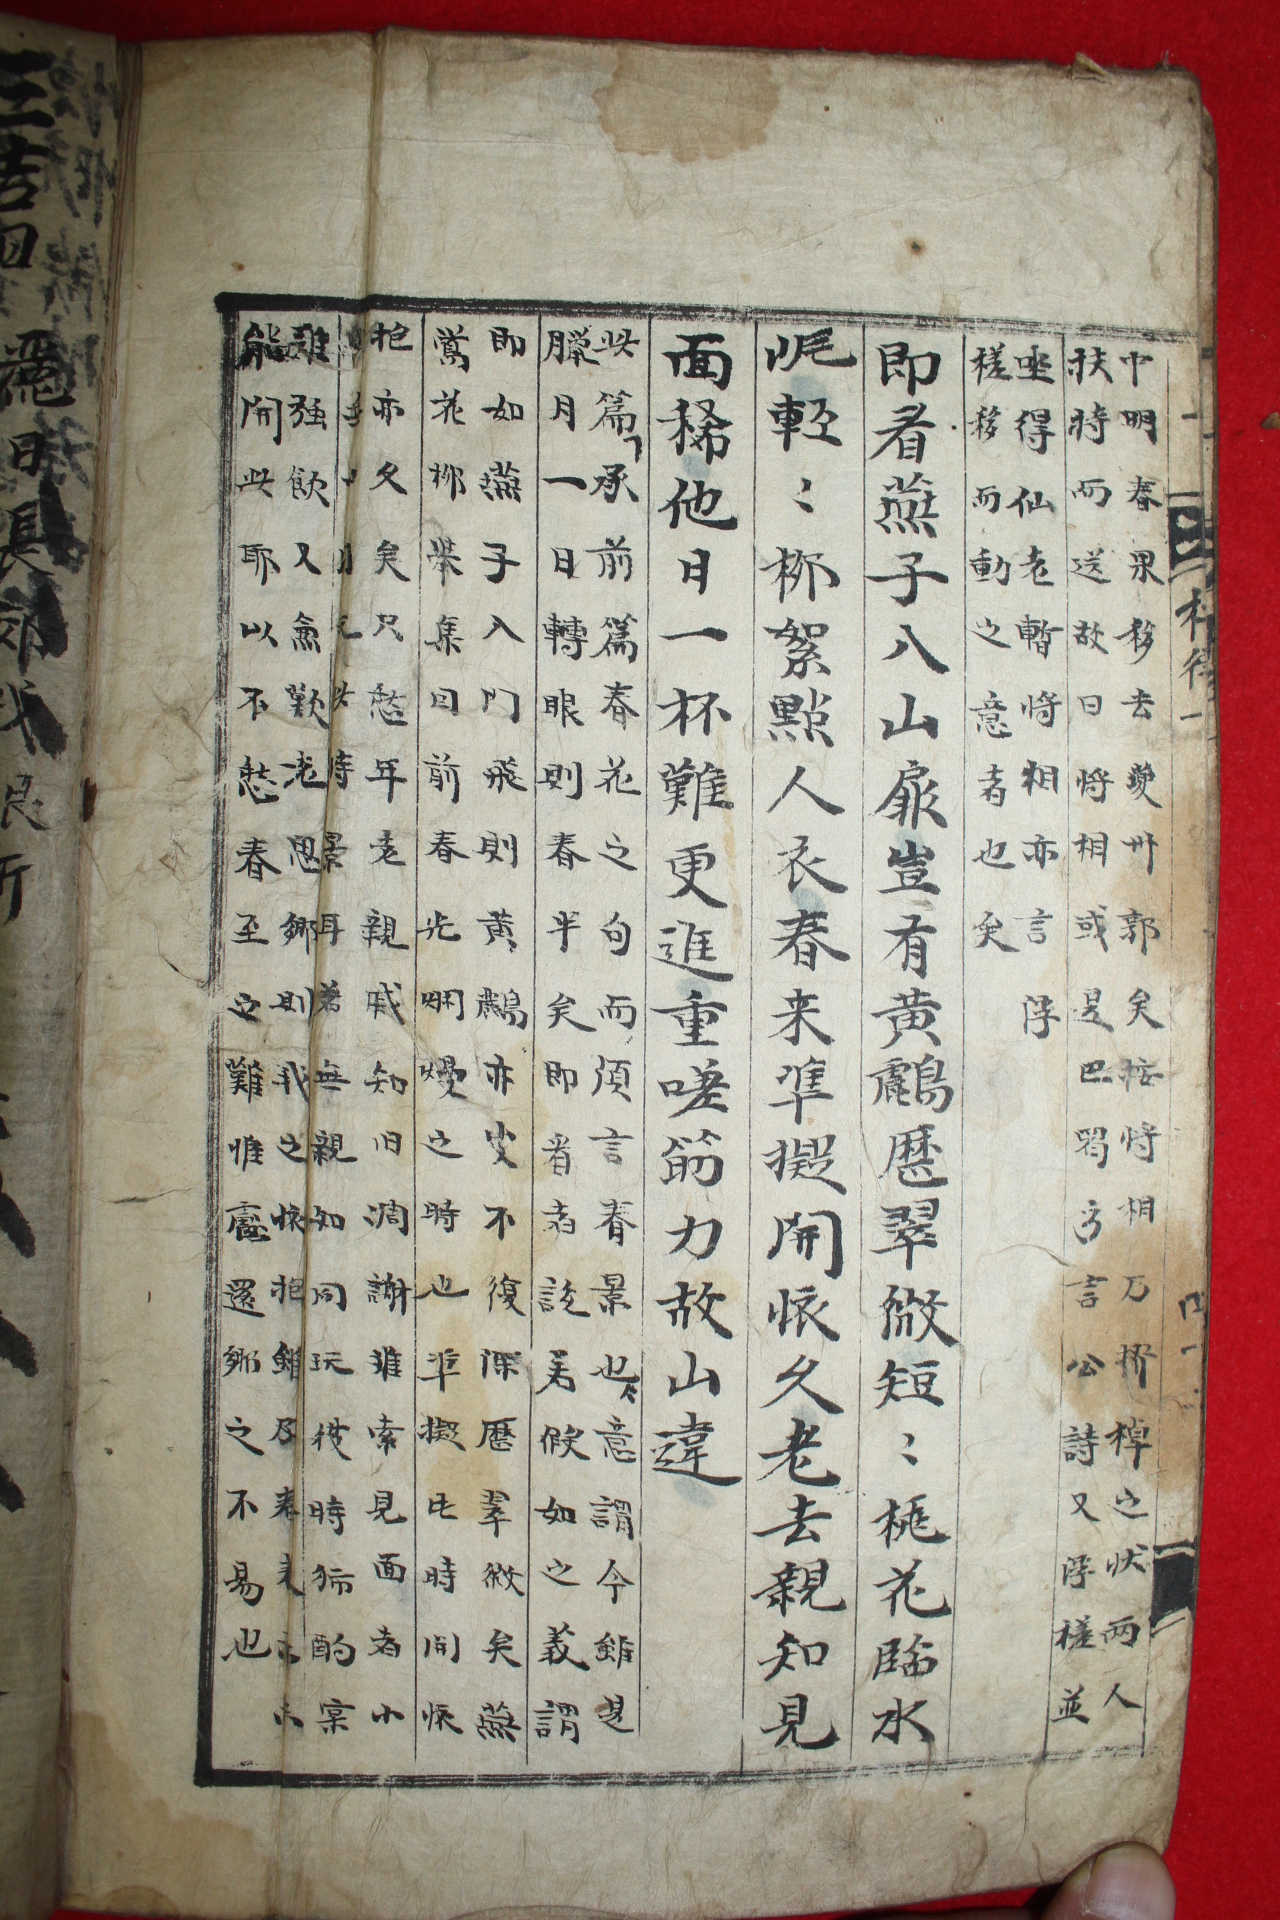 中明春果移去夔州郭矣按將相乃擠棹之状两人
扶將而送故曰將相或是巴蜀方言公詩又浮槎並
坐得仙老暫將相亦言浮
槎移而動之意者也矣
即看燕子入山扉豈有黄鸝歷翠微短〻桃花臨水
岸輕〻柳絮點人衣春来準擬開懷久老去親知見
面稀他日一杯難更進重嗟筋力故山違
此篇承前篇春花之句而須言春景也意謂今雖是
臘月一日轉眼則春半矣即看者設若假如之義謂
即如燕子入門飛則黄鸝亦豈不復深歷翠微矣燕
鶯花柳舉集目前春光爛熳之時也準擬此時開懷
抱亦久矣只愁年老親戚知旧凋謝離索見面者小
時景耳若無親知同玩彼時獨酌寡
雖强飲又無歡老思鄉則我之懷抱雖及春来
能開此耶以不愁春至之難惟處還鄉之不易也